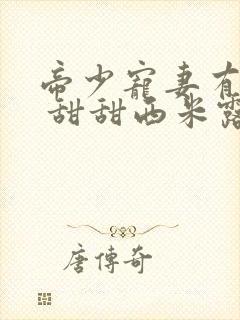 帝少寵妻有
甜甜西米露
唐傳奇